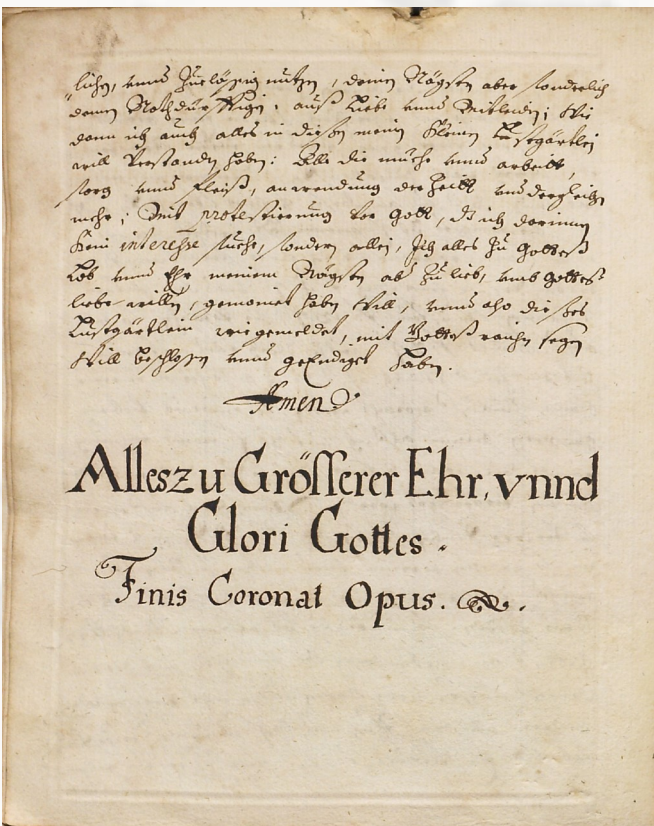 lichen, unnd Zuelässig nutzen, deinen Nägsten aber sonderlich
denen Nothdurfftigen, auß Liebe unnd Mitleiden; Wie
dann ich auch alles in disen meinem Kleinen Lustgärtlei
will Verstanden haben: Alle die muehe unnd arbeitt,
sorg unnd fleiß, anwendung der Zeitt undergleichen
mehr; Mit protestierung vor Gott, dz ich darinnen
Kein interesse suche, sondern allein, Ich alles Zu Gottes
Lob unnd Ehr meinem Nägsten aber Zu lieb, umb Gottes
liebe willen, gemainet haben Will, unnd also dises
Lustgärtlein wie gemeldet, mit Gottes reichen segen
Will beschlossen unnd geendiget haben.
Amen
Alles zu Grösserer Ehr, vnnd
Glori Gottes.
Finis Coronat Opus.